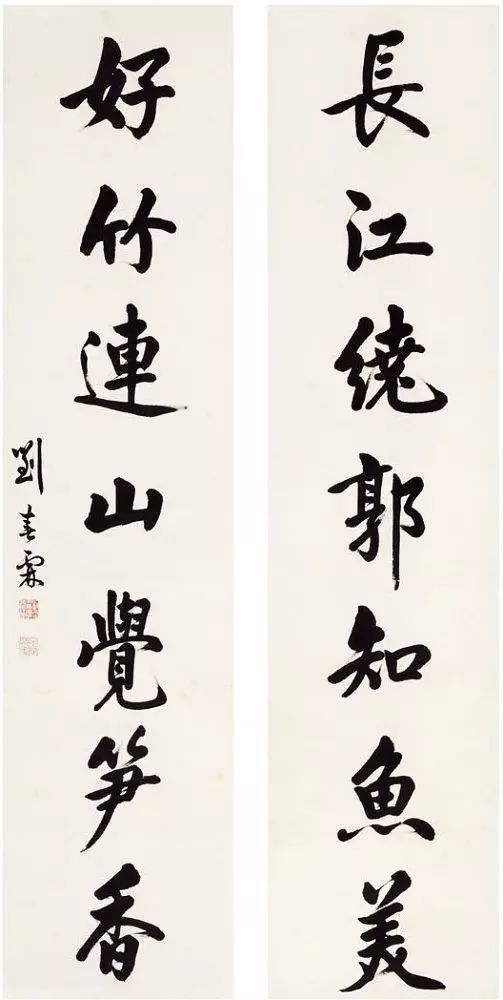 長江繞郭知魚美
好竹連山覺笋香
劉春霖